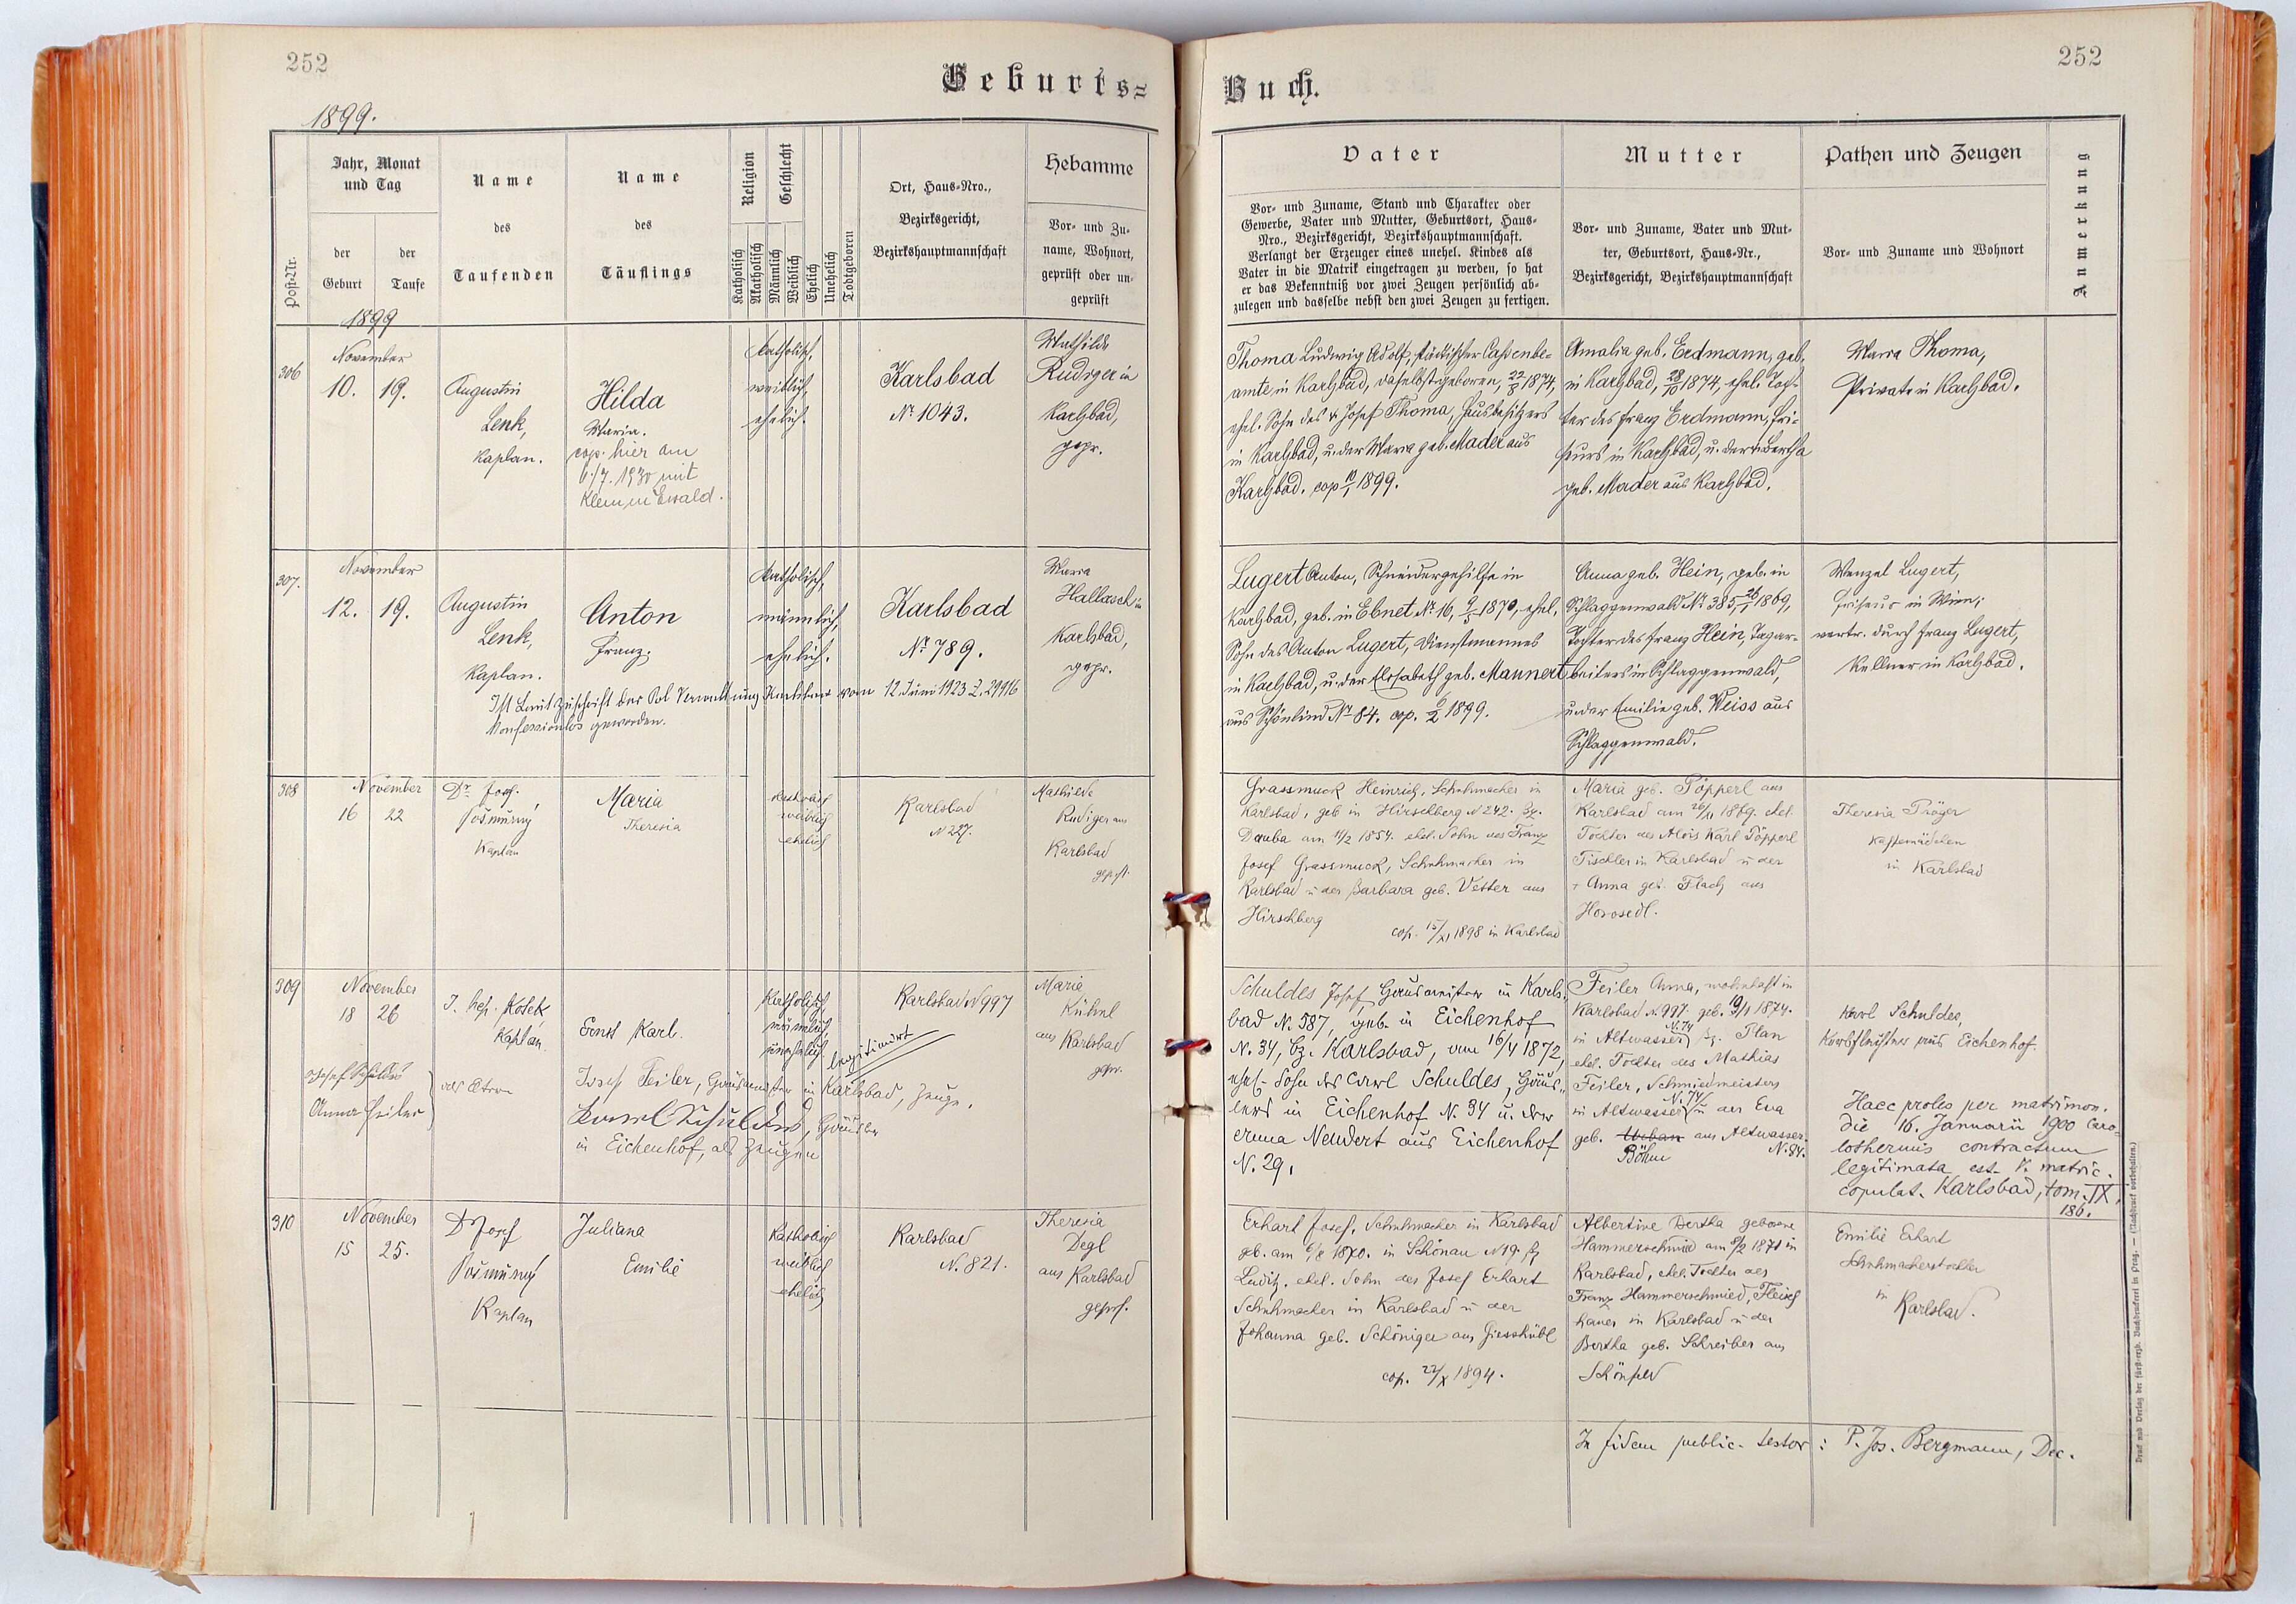 252
Geburts=
1899.
Post-Nr.
Jahr, Monat
und Tag
der
Geburt
der
Taufe
Name
des
Taufenden
Name
des
Täuflings
Religion
Katholisch
Akatholisch
Geschlecht
Männlich
Weiblich
Ehelich
Unehelich
Todtgeboren
Ort, Haus-Nro.,
Bezirksgericht,
Bezirkshauptmannschaft
Hebamme
Vor- und Zu-
name, Wohnort,
geprüft oder un-
geprüft
1899
306
November
10. 19.
Augustin
Lenk,
Kaplan.
Hilda
Maria.
cop. hier am
6./7. 1930 mit
Klemm Ewald.
katholisch,
weiblich,
ehelich.
Karlsbad
Nr. 1043.
Mathilde
Rudiger in
Karlsbad,
gepr.
307.
November
12. 19.
Augustin
Lenk,
Kaplan.
Anton
Franz.
katholisch,
männlich,
ehelich.
Karlsbad
Nr. 789.
Maria
Hallasch in
Karlsbad,
gepr.
Ist laut Zuschrift der Pol Verwaltung Karlsbad vom 12 Juni 1923 Z. 29916
konfessionslos geworden.
308
November
16 22
Dr. Josef
Pošmürný
Kaplan
Maria
Theresia
katholisch
weiblich
ehelich
Karlsbad
N 227.
Mathilde
Rudiger aus
Karlsbad
geprft.
309
November
18 26
Kosek
Kaplan
Ernst Karl.
Katholisch
männlich
unehelich
legitimirt
Karlsbad N 997
Maria
Kühnl
aus Karlsbad
gepr.
Josef Schuldes
Anna Feiler
Josef Feiler, Hausmeister in Karlsbad, Zeuge.
Karl Schuldes, Häusler
in Eichenhof, als Zeugen
310
November
15 25.
Dr Josef
Pošmürný
Kaplan
Juliana
Emilie
Katholisch
weiblich
ehelich
Karlsbad
N. 821.
Theresia
Degl
aus Karlsbad
geprf.
252
Buch.
Vater
Vor- und Zuname, Stand und Charakter oder
Gewerbe, Vater und Mutter, Geburtsort, Haus-
Nro., Bezirksgericht, Bezirkshauptmannschaft.
Verlangt der Erzeuger eines unehel. Kindes als
Vater in die Matrik eingetragen zu werden, so hat
er das Bekenntniß vor zwei Zeugen persönlich ab-
zulegen und dasselbe nebst den zwei Zeugen zu fertigen.
Mutter
Vor- und Zuname, Vater und Mut-
ter, Geburtsort, Haus-Nr.,
Bezirksgericht, Bezirkshauptmannschaft
Pathen und Zeugen
Vor- und Zuname und Wohnort
Anmerkung
Thoma Ludwig Adolf, städtischer Cassenbe-
amte in Karlsbad, daselbst geboren, 22/8 1874,
ehel. Sohn des † Josef Thoma, Hausbesitzers
in Karlsbad, u. der Maria geb. Mader aus
Karlsbad. cop 10/1 1899.
Amalia geb. Erdmann, geb.
in Karlsbad, 28/10 1874, ehel. Toch-
ter des Franz Erdmann, Fri-
seurs in Karlsbad, u. der † Bertha
geb. Mader aus Karlsbad.
Maria Thoma,
Private in Karlsbad.
Lugert Anton, Schneidergehilfe in
Karlsbad, geb. in Ebnet Nr. 16, 9/5 1870, ehel.
Sohn des Anton Lugert, Dienstmannes
in Karlsbad, u. der Elisabeth geb. Mannert
aus Schönlind Nr. 84. cop. 6/2 1899.
Anna geb. Hein, geb. in
Schlaggenwald Nr. 385, 26/1 1869,
Tochter des Franz Hein, Tagar-
beiters in Schlaggenwald,
u. der Emilie geb. Weiss aus
Schlaggenwald.
Wenzel Lugert,
Friseur in Wien;
vertr. durch Franz Lugert,
Kellner in Karlsbad.
Grassmuck Heinrich, Schuhmacher in
Karlsbad, geb in Hirschberg N 242. Bz.
Dauba am 11/2 1854. ehel. Sohn des Franz
Josef Grassmuck, Schuhmacher in
Karlsbad u der Barbara geb. Vetter aus
Hirschberg
cop. 15/XI 1898 in Karlsbad
Maria geb. Pöpperl aus
Karlsbad am 26/11 1869. ehel.
Tochter des Alois Karl Pöpperl
Tischler in Karlsbad u der
† Anna geb. Flach aus
Horosedl.
Theresia Pröger
Kaffemädchen
in Karlsbad
Schuldes Josef, Hausmeister in Karls-
bad N. 587, geb. in Eichenhof
N. 34, Bz. Karlsbad, am 16/4 1872,
ehel. Sohn des Carl Schuldes, Häus-
lers in Eichenhof N. 34 u. der
Anna Neudert aus Eichenhof
N. 29.
Feiler Anna, wohnhaft in
Karlsbad N. 997. geb. 19/1 1874.
in Altwasser N. 74 Bz. Plan
ehel. Tochter des Mathias
Feiler, Schmiedmeisters
in Altwasser N. 74 u der Eva
geb. Urban aus Altwasser
Böhm N. 84.
Karl Schuldes,
Korbflechter aus Eichenhof.
Haec proles per matrimon.
die 16. Januarii 1900 Caro-
lothermis contractum
legitimata est. V. matric.
copulat. Karlsbad, tom. IX,
186.
Erhart Josef, Schuhmacher in Karlsbad
gb. am 6/8 1870. in Schönau N 19. Bz
Luditz, ehel. Sohn des Josef Erhart
Schuhmacher in Karlsbad u der
Johanna geb. Schöniger aus Giesshübl
cop. 22/X 1894.
Albertine Bertha geborene
Hammerschmied am 8/2 1871 in
Karlsbad, ehel. Tochter des
Franz Hammerschmied, Fleisch
hauer in Karlsbad u der
Bertha geb. Schreiber aus
Schönfeld
Emilie Erhart
Schuhmacherstochter
in
Karlsbad.
In fidem public. testor: P. Jos. Bergmann, Dec.
Druck und Verlag der fürst-erzb. Buchdruckerei in Prag. — (Nachdruck vorbehalten.)